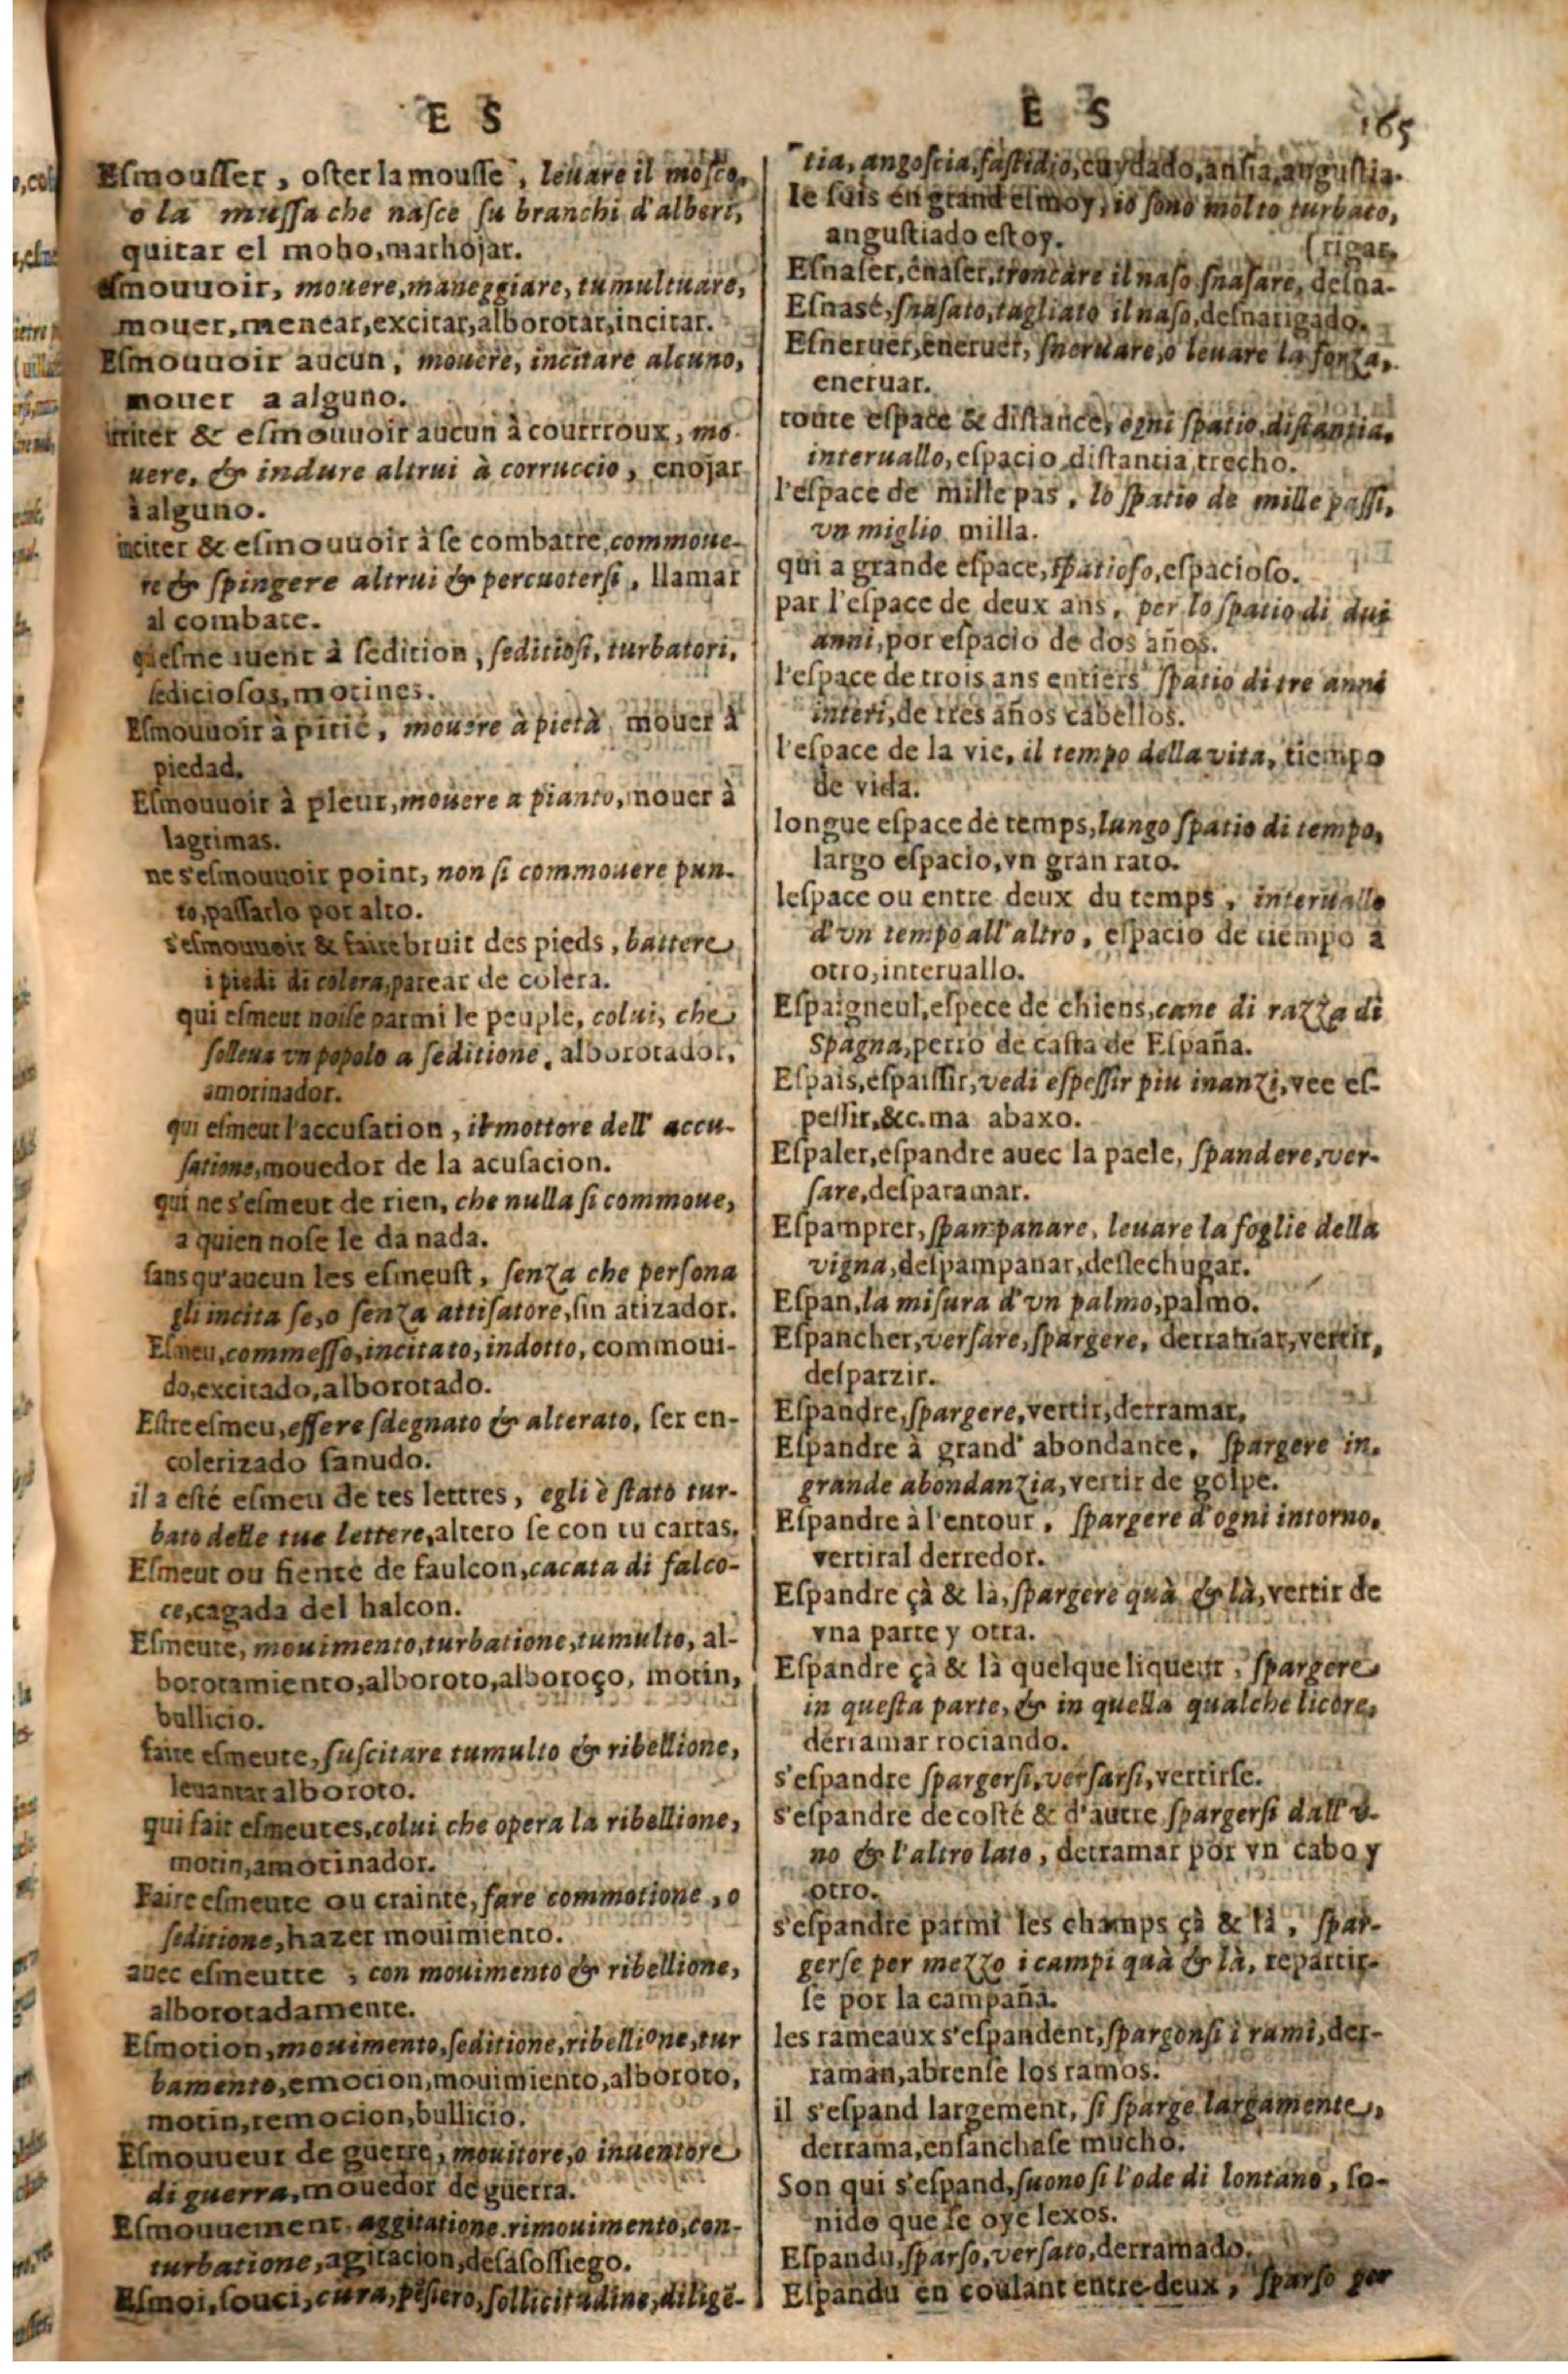 E S
Esmousser, oster la mousse, leuare il mosco,
o la mussa che nasce su branchi d'alberi,
quitar el moho, marhojar.
esmouuoir, mouere, maneggiare, tumultuare,
mouer, menear, excitar, alborotar, incitar.
Esmouuoir aucun, mouere, incitare alcuno,
mouer a alguno.
irriter & esmouuoir aucun à courrroux, mo-
uere, & indure altrui à corruccio, enojar
à alguno.
inciter & esmouuoir à se combatre, commoue-
re & spingere altrui & percuotersi, llamar
al combate.
qui esme uuent à sedition, seditiosi, turbatori,
sediciosos, motines.
Esmouuoir à pitié, mouere à pietà, mouer à
piedad.
Esmouuoir à pleur, mouere a pianto, mouer à
lagrimas.
ne s'esmouuoir point, non si commouere pun-
to, passarlo por alto.
s'esmouuoir & faire bruit des pieds, battere
i piedi di colera, patear de colera.
qui esmeut noise parmi le peuple, colui, che
solleua vn popolo a seditione, alborotador,
amotinador.
qui esmeut l'accusation, il mottore dell' accu-
satione, mouedor de la acusacion.
qui ne s'esmeut de rien, che nulla si commoue,
a quien nose le da nada.
sans qu'aucun les esmeust, senza che persona
gli incita se, o senza attisatore, sin atizador.
Esmeu, commesso, incitato, indotto, commoui-
do, excitado, alborotado.
Estre esmeu, essere sdegnato & alterato, ser en-
colerizado sanudo.
il a esté esmeu de tes lettres, egli è stato tur-
bato delle tue lettere, altero se con tu cartas.
Esmeut ou fiente de faulcon, cacata di falco-
ce, cagada del halcon.
Esmeute, mouimento, turbatione, tumulto, al-
borotamiento, alboroto, alboroço, motin,
bullicio.
faire esmeute, suscitare tumulto & ribellione,
leuantar alboroto.
qui fait esmeutes, colui che opera la ribellione,
motin, amotinador.
Faire esmeute ou crainte, fare commotione, o
seditione, hazer mouimiento.
auec esmeutte, con mouimento & ribellione,
alborotadamente.
Esmotion, mouimento, seditione, ribellione, tur
bamento, emocion, mouimiento, alboroto,
motin, remocion, bullicio.
Esmouueur de guerre, mouitore, o inuentore
di guerra, mouedor de guerra.
Esmouuement, aggitatione, rimouimento, con-
turbatione, agitacion, desasossiego.
Esmoi, souci, cura, pẽsiero, sollicitudine, diligẽ-
E S 165
tia, angoscia, fastidio, cuydado, ansia, angustia.
Ie suis en grand esmoy, io sono molto turbato,
angustiado estoy. (rigar.
Esnaser, énaser, troncare il naso snasare, desna-
Esnasé, snasato, tagliato il naso, desnarigado.
Esneruer, eneruer, sneruare, o leuare la forza,
eneruar.
toute espace & distance, ogni spatio, distantia,
interuallo, espacio distantia, trecho.
l'espace de mille pas, lo spatio de mille passi,
vn miglio milla.
qui a grande espace, spatioso, espacioso.
par l'espace de deux ans, per lo spatio di dui
anni, por espacio de dos años.
l'espace de trois ans entiers spatio di tre anni
interi, de tres años cabellos.
l'espace de la vie, il tempo della vita, tiempo
de vida.
longue espace de temps, lungo spatio di tempo,
largo espacio, vn gran rato.
lespace ou entre deux du temps, interuallo
d'vn tempo all'altro, espacio de tiempo a
otro, interuallo.
Espaigneul, espece de chiens, cane di razza di
Spagna, perro de casta de España.
Espais, espaissir, vedi espessir piu inanzi, vee es-
pessir, &c. ma abaxo.
Espaler, espandre auec la paele, spandere, ver-
sare, desparamar.
Espamprer, spampanare, leuare la foglie della
vigna, despampanar, deslechugar.
Espan, la misura d'vn palmo, palmo.
Espancher, versare, spargere, derramar, vertir,
desparzir.
Espandre, spargere, vertir, derramar,
Espandre à grand' abondance, spargere in
grande abondanzia, vertir de golpe.
Espandre à l'entour, spargere d'ogni intorno,
vertiral derredor.
Espandre çà & là, spargere quà & là, vertir de
vna parte y otra.
Espandre çà & là quelque liqueur, spargere
in questa parte, & in quella qualche licore,
derramar rociando.
s'espandre spargersi, versarsi, vertirse.
s'espandre de costé & d'autre spargersi dall'v-
no & l'altro lato, derramar por vn cabo y
otro.
s'espandre parmi les champs çà & là, spar-
gerse per mezzo i campi quà & là, repartir-
se por la campaña.
les rameaux s'espandent, spargonsi i rami, der-
raman, abrense los ramos.
il s'espand largement, si sparge largamente,
derrama, ensanchase mucho.
Son qui s'espand, suono si l'ode di lontano, so-
nido que se oye lexos.
Espandu, sparso, versato, derramado.
Espandu en coulant entre-deux, sparso per